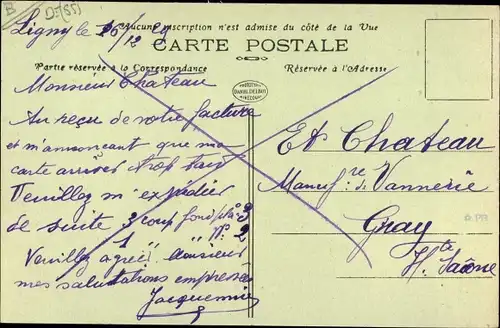 B
D7(55)
Ligny le 26/12 29
Aucune inscription n'est admise du côté de la Vue
CARTE POSTALE
Partie réservée à la Correspondance
Réservée à l'Adresse
Monsieur Chateau
Au reçu de votre facture
et m'annonçant que ma
carte arrivée trop tard
Veuillez m'expédier
de suite 3 coup fond plat 3
1 " " N° 2
Veuillez agréer Monsieur
mes salutations empressées
Jacquemin
Et. Chateau
Manuf.re de Vannerie
Gray
Hte Saône